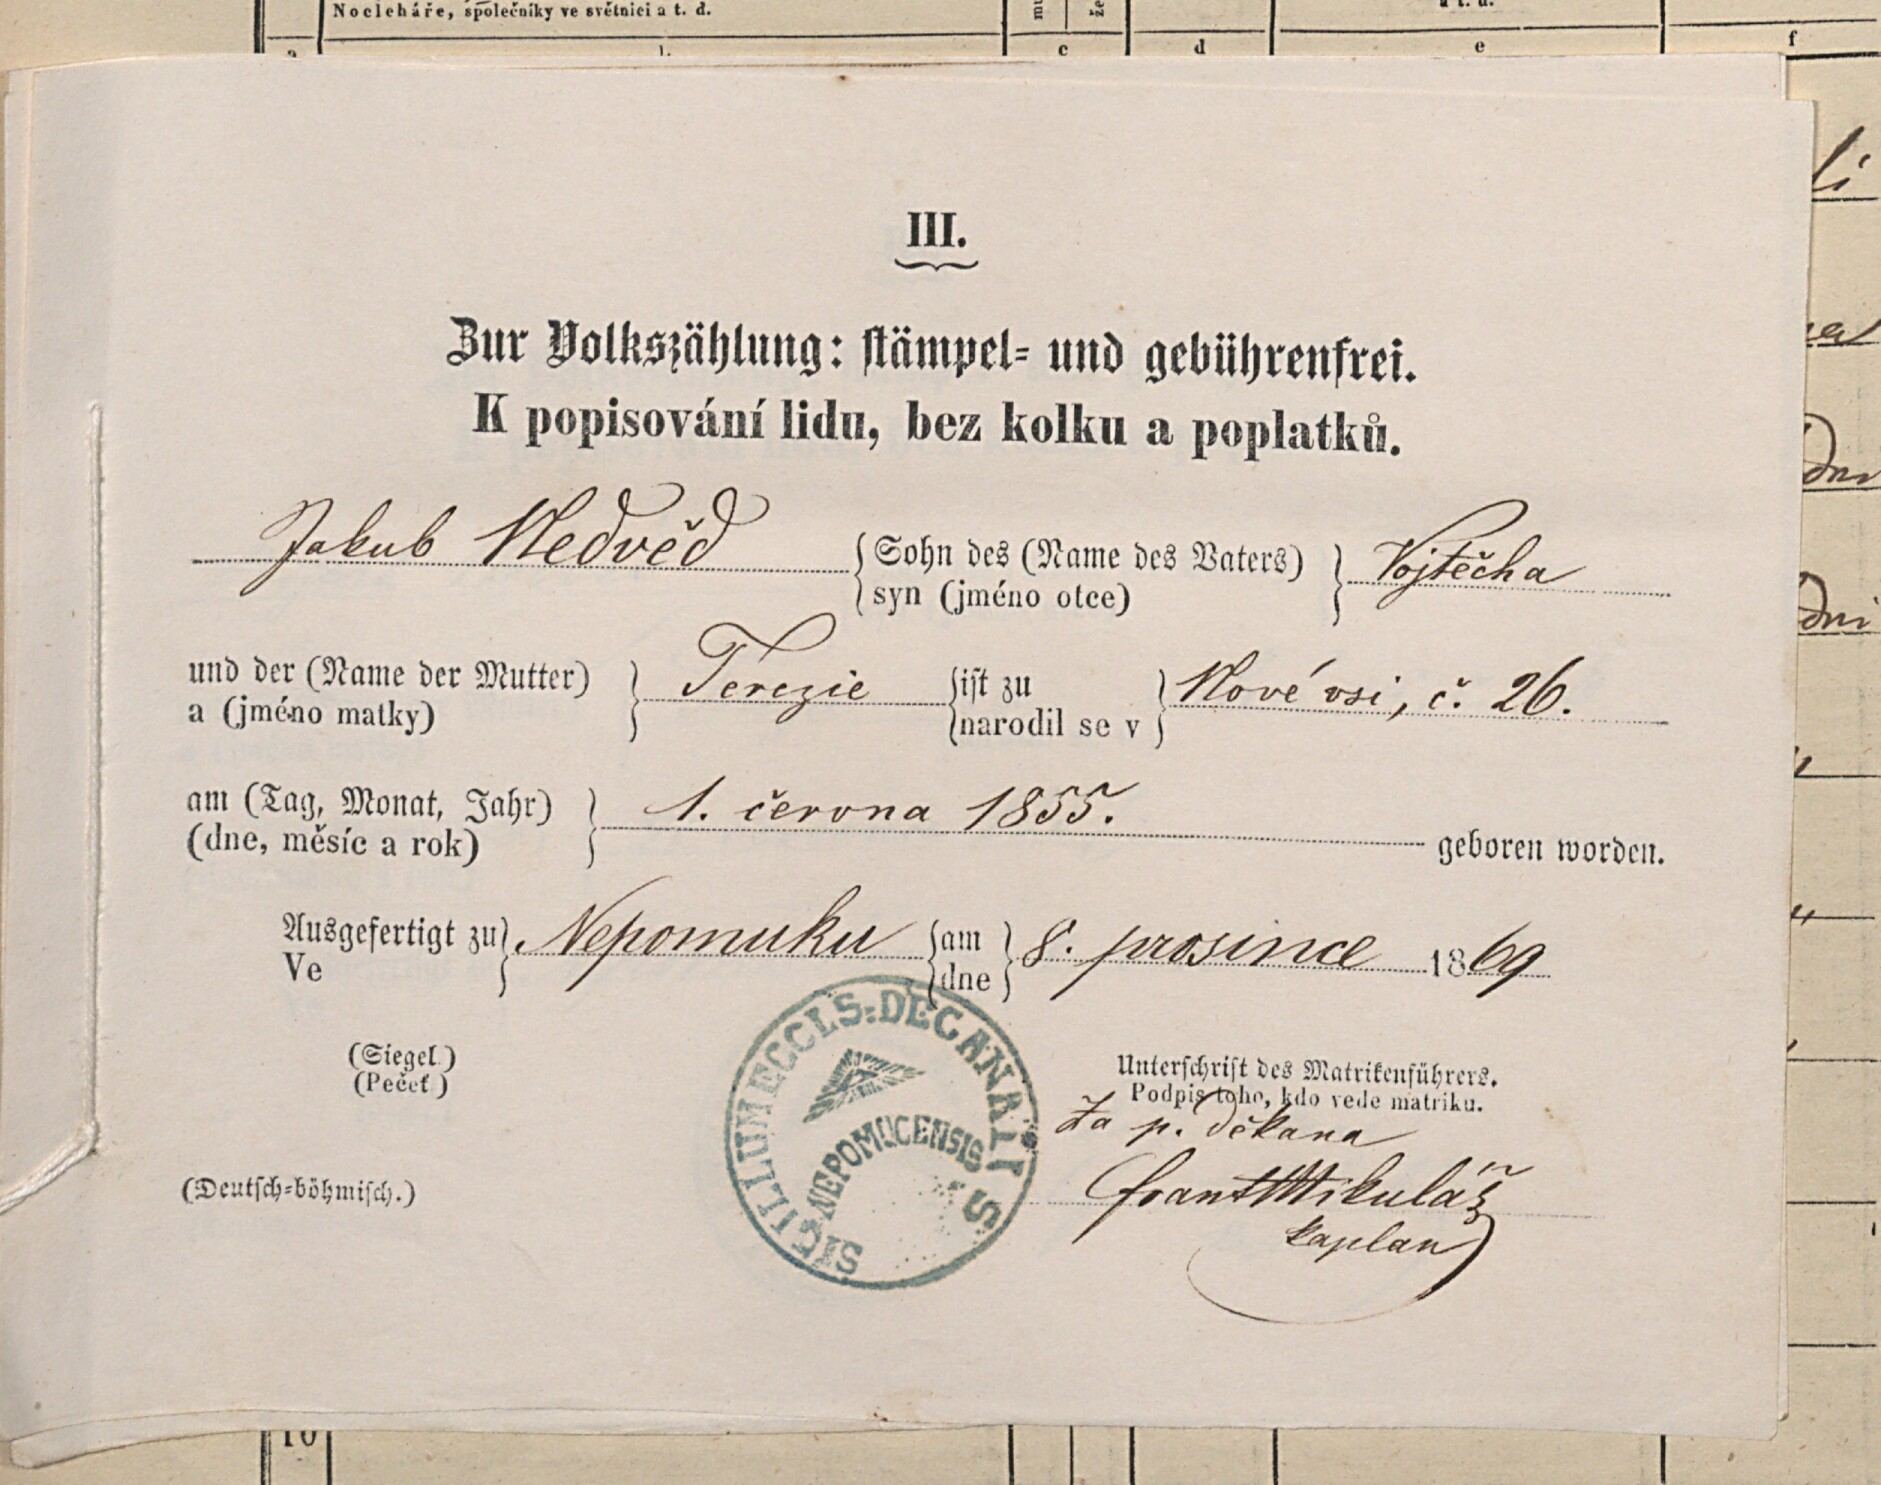 Nocleháře, společníky ve světnici a t. d.
a t. d.
c d e f
III.
Zur Volkszählung: stämpel- und gebührenfrei.
K popisování lidu, bez kolku a poplatků.
Jakub Nedvěd Sohn des (Name des Vaters) Vojtěcha
syn (jméno otce)
und der (Name der Mutter) Terezie ist zu Nové vsi, č. 26.
a (jméno matky) narodil se v
am (Tag, Monat, Jahr) 1. června 1855.
(dne, měsíc a rok) geboren worden.
Ausgefertigt zu Nepomuku am 8. prosince 1869
Ve dne
(Siegel.)
(Pečeť)
SIGILIUM ECCLS: DECANALIS
NEPOMUCENSIS
Unterschrift des Matrikenführers.
Podpis toho, kdo vede matriku.
Za p. děkana
Frant Mikuláš
kaplan
(Deutsch-böhmisch.)
10